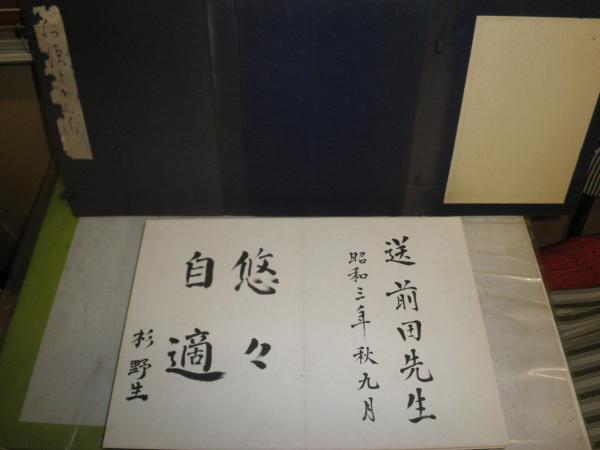 送 前田先生
昭和三年 秋九月
悠々
自適
杉野生